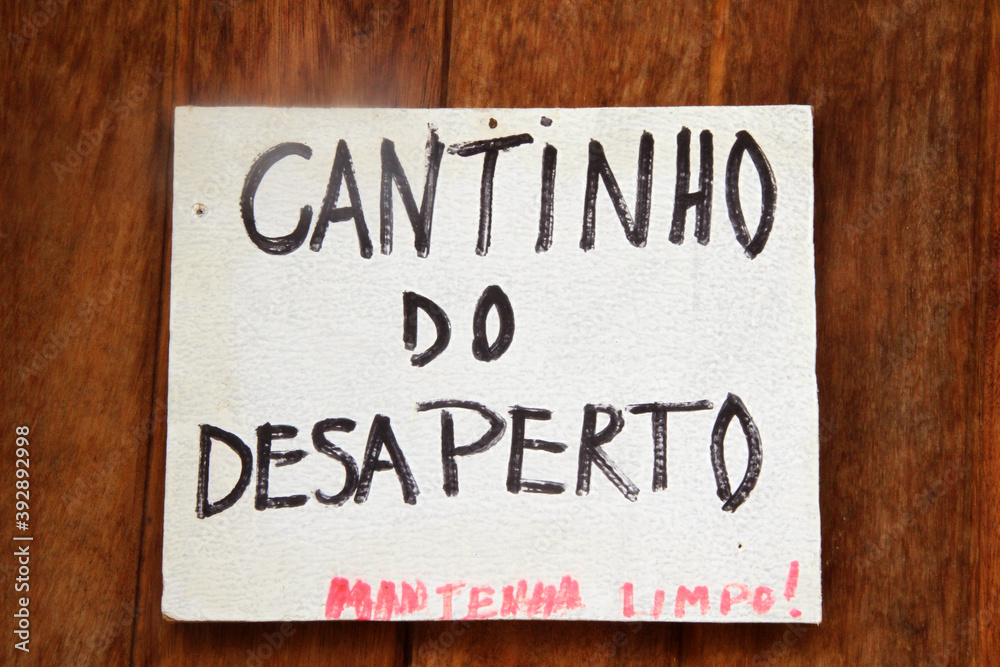 CANTINHO
DO
DESAPERTO
MANTENHA LIMPO!
Adobe Stock | #392892998